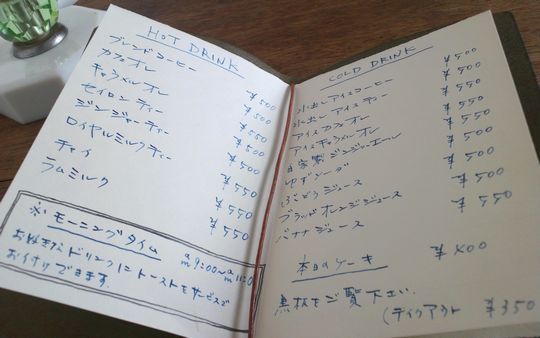 HOT DRINK
ブレンドコーヒー
カフェオレ
キャラメルオレ
セイロンティー
ジンジャーティー
ロイヤルミルクティー
チャイ
ラムミルク
¥500
¥500
¥550
¥500
¥550
¥550
¥550
※モーニングタイム am9:00~am11:00
お好きなドリンクにトーストをサービスで
おつけできます.
COLD DRINK
水出しアイスコーヒー
水出しアイスティー
アイスカフェオレ
アイスキャラメルオレ
自家製ジンジャーエール
ゆずソーダ
ぶどうジュース
ブラッドオレンジジュース
バナナジュース
¥500
¥500
¥550
¥550
¥550
¥500
¥500
¥550
本日のケーキ ¥400
黒板をご覧下さい.
(テイクアウト ¥350